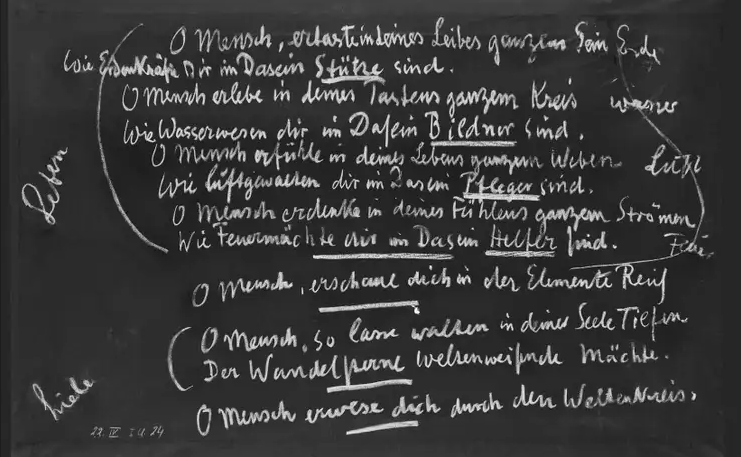 O Mensch, ertaste in deines Leibes ganzem Sein Erde
Wie Erdenkräfte Dir im Dasein Stütze sind.
O Mensch erlebe in deines Tastens ganzem Kreis Wasser
Wie Wasserwesen dir im Dasein Bildner sind.
O Mensch erfühle in deines Lebens ganzem Weben Luft
Wie Luftgewalten dir im Dasein Pfleger sind.
Leben
O Mensch erdenke in deines Fühlens ganzem Strömen
Wie Feuermächte dir im Dasein Helfer sind. Feuer
O Mensch, erschaue dich in der Elemente Reich
O Mensch, so lasse walten in deiner Seele Tiefen
Der Wandelsterne weltenweisende Mächte.
Liebe
O Mensch erwese dich durch den Weltenkreis.
22. IV 24